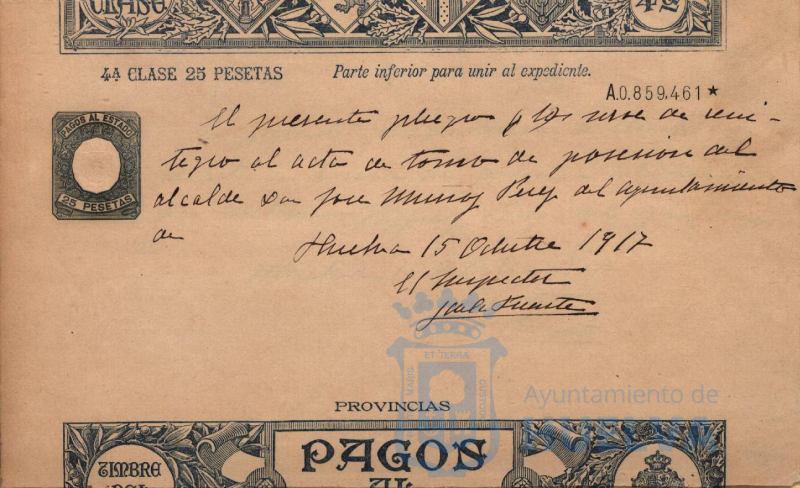 CLASE 4ª
4ª CLASE 25 PESETAS
Parte inferior para unir al expediente.
A.0.859.461★
PAGOS AL ESTADO
25 PESETAS
El presente pliego sirve de rein-
tegro al acta de toma de posesion del
alcalde Don Jose Munoz Perez del Ayuntamiento
de
Huelva 15 Octubre 1917
El Inspector
ET TERRA
MARIS
CUSTODIA
Ayuntamiento de
HUELVA
PROVINCIAS
TIMBRE
DEL
PAGOS
AL